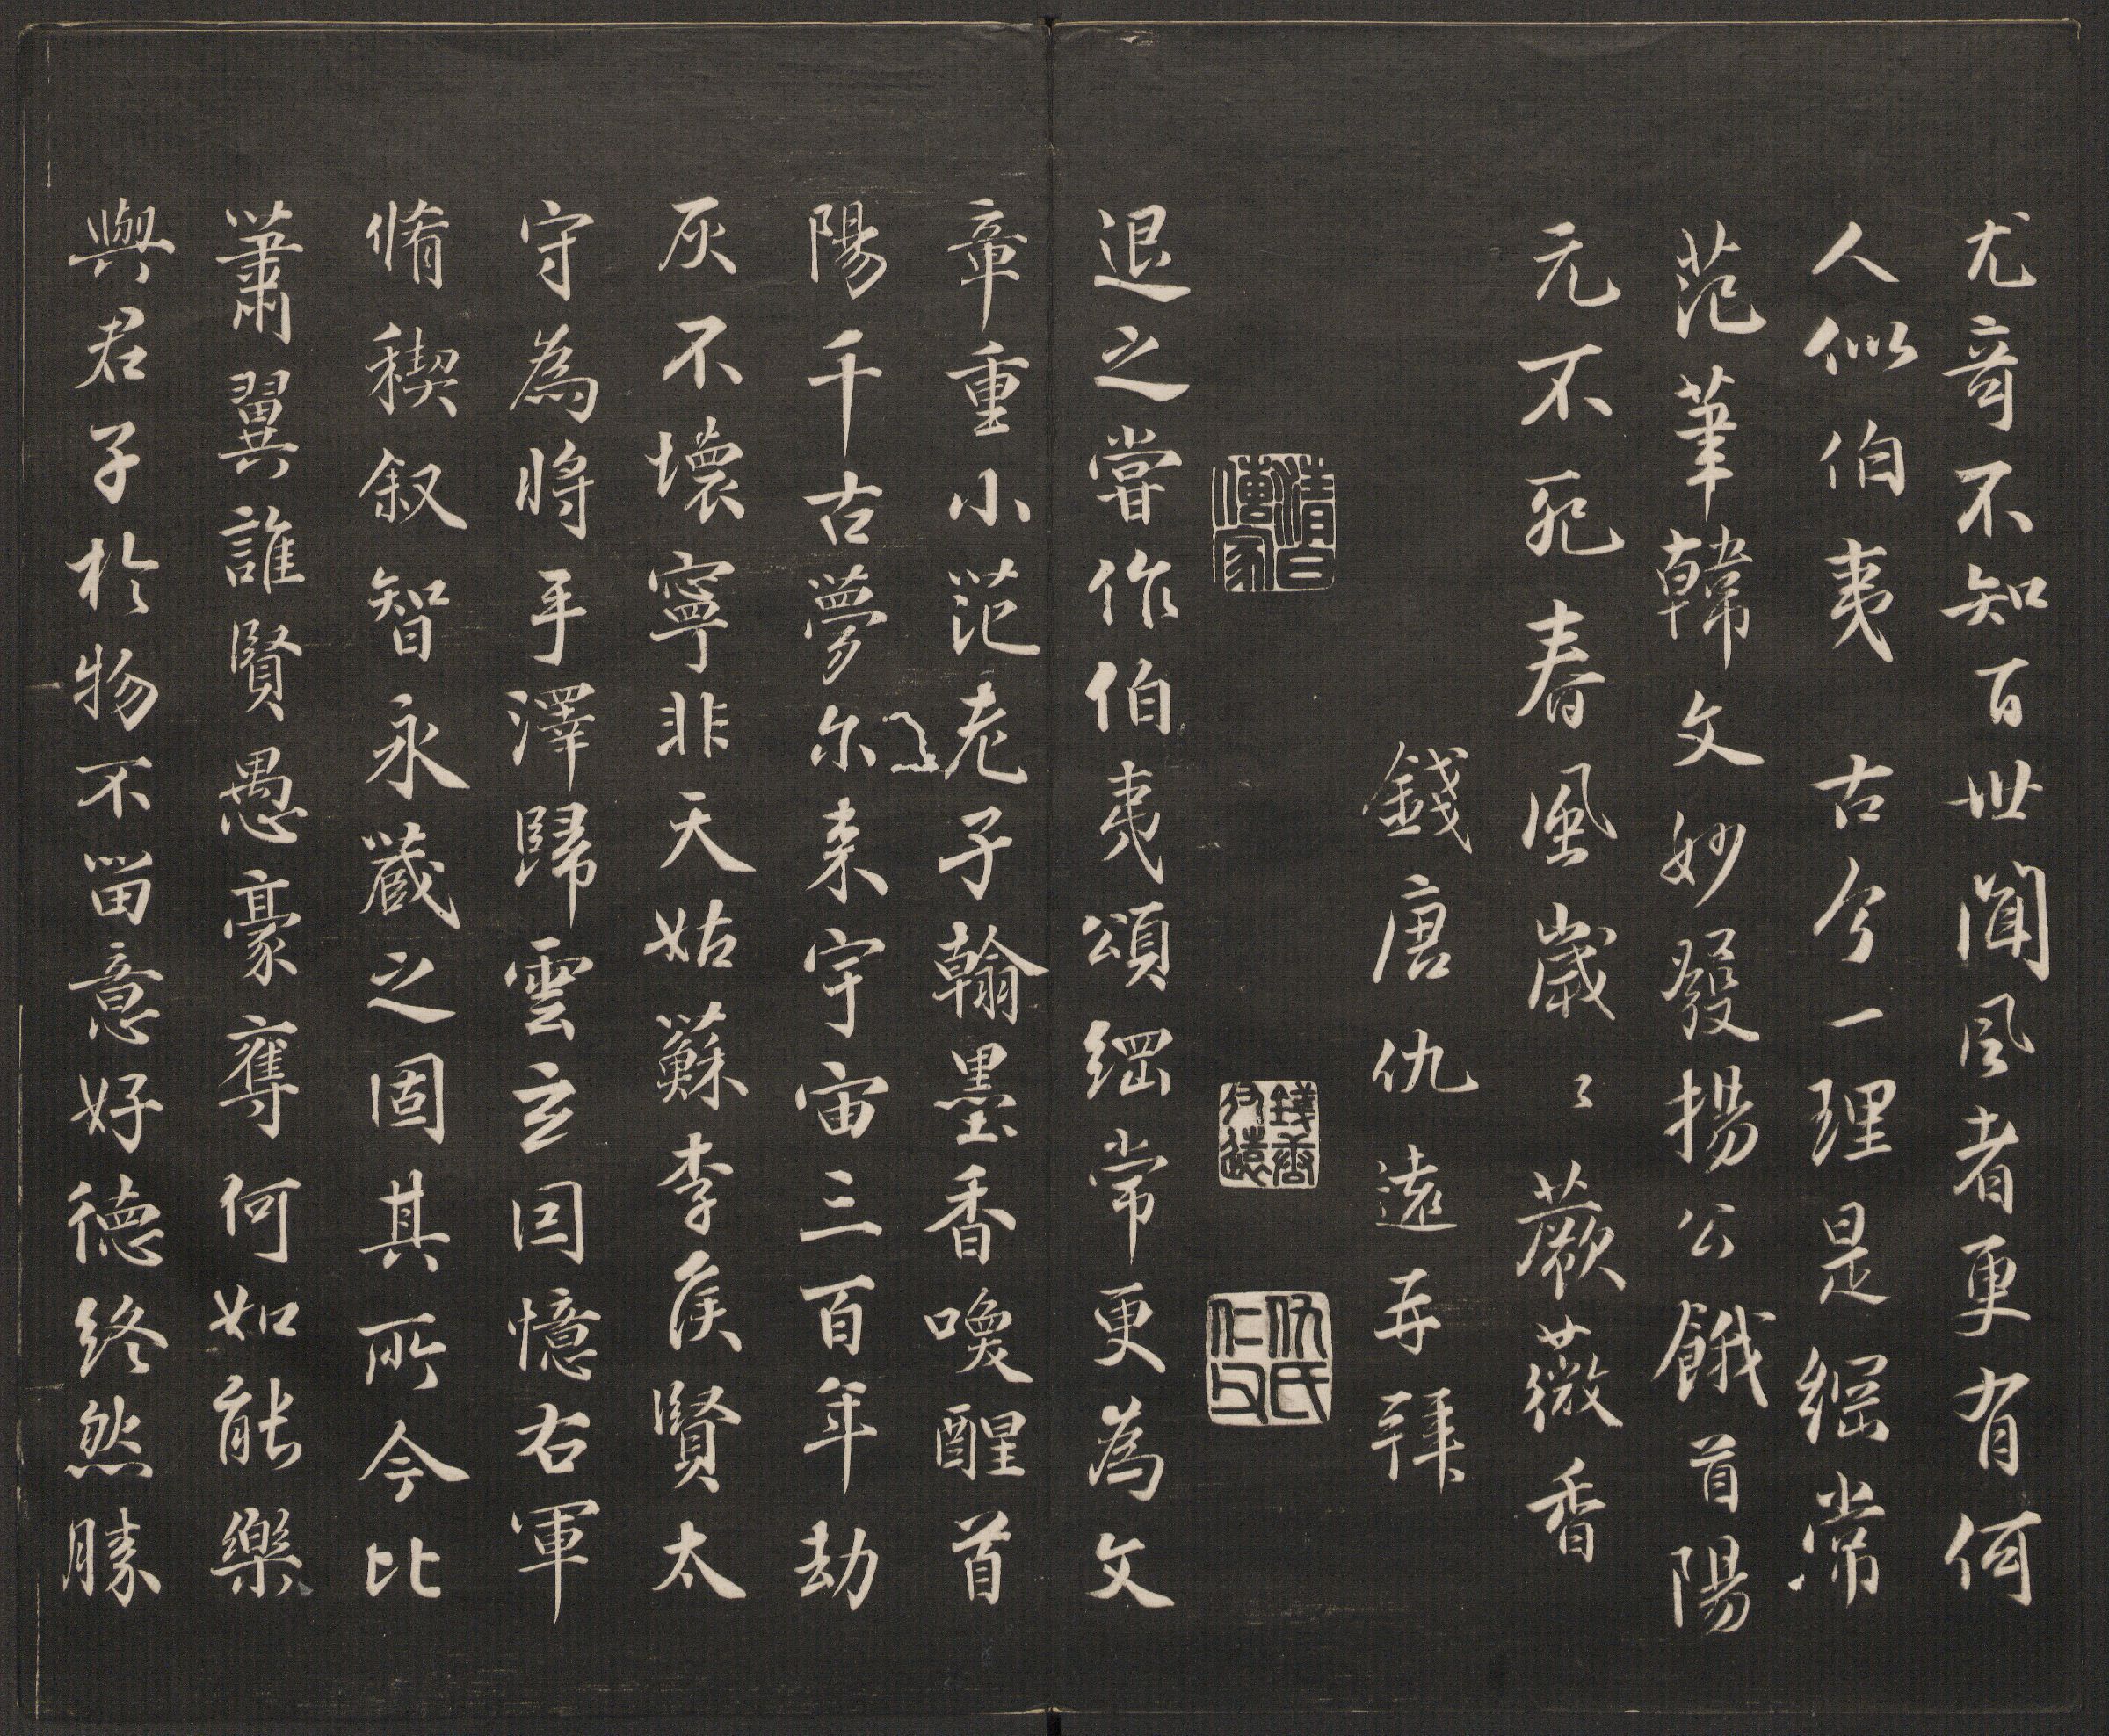 尤奇不知百世聞風者更有何
人似伯夷　古今一理是綱常
范筆韓文妙發揚公餓首陽
元不死春風歲〻蕨薇香
錢唐仇遠再拜
清白傳家
錢唐仇遠
仇氏仁父
退之嘗作伯夷頌綱常更為文
章重小范老子翰墨香喚醒首
陽千古夢尔来宇宙三百年劫
灰不壞寧非天姑蘇李侯賢太
守為將手澤歸雲玄因憶右軍
脩稧叙智永藏之固其所今比
蕭翼誰賢愚豪奪何如能樂
與君子於物不留意好德終然勝